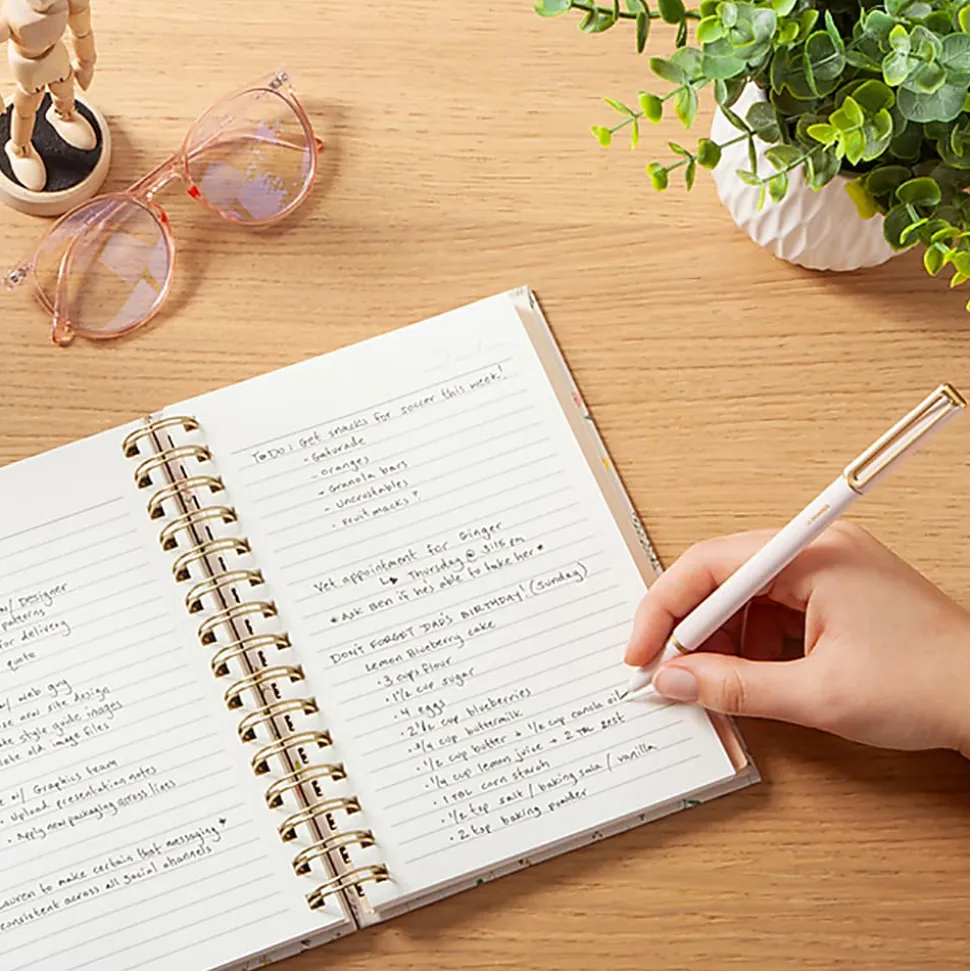 w/ Designer
patterns
for delivery
quote
w/ web guy
new site design
style guide images
old image files
w/ Graphics team
• Upload presentation notes
• Apply new packaging across lines
Lauren to make certain that messaging *
consistent across all social channels
TODO: Get snacks for soccer this week!
- Gaturade
- oranges
- Granola bars
- Uncrustables
- Fruit snacks?
Vet appointment for Ginger
↳ Thursday @ 3:15 pm
* ASK Ben if he's able to take her *
DON'T FORGET DAD'S BIRTHDAY! (Sunday)
Lemon Blueberry cake
• 3 cups flour
• 1 1/2 cup sugar
• 4 eggs
• 2 1/2 cup blueberries
• 3/4 cup buttermilk
• 1/2 cup butter + 1/2 cup canola oil
• 1/4 cup lemon juice + 2 TBL zest
• 1 TBL corn starch
• 1/2 tsp salt / baking soda / vanilla
• 2 tsp baking powder